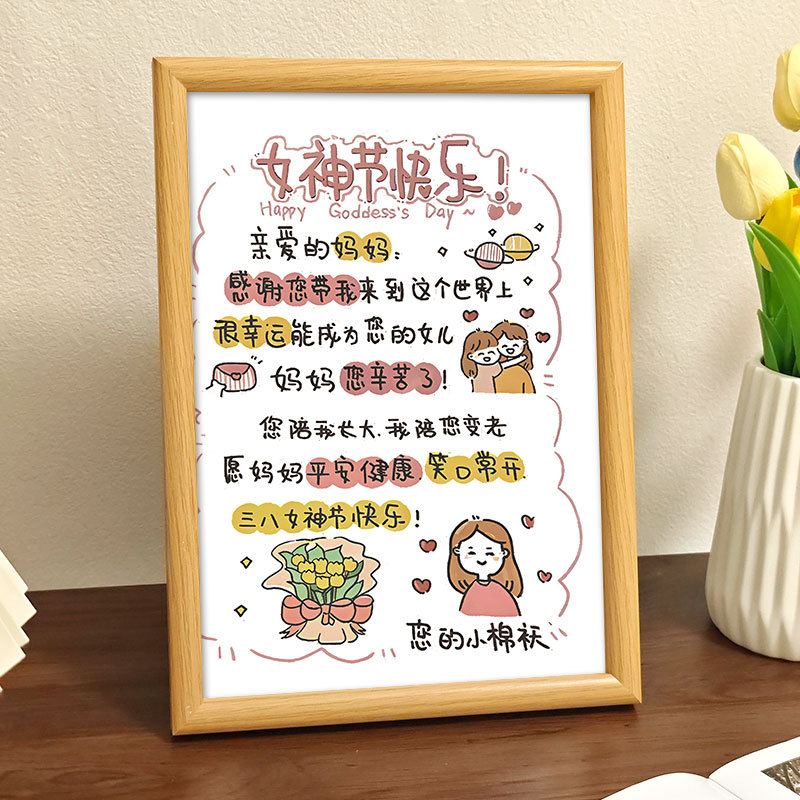 女神节快乐!
Happy Goddess's Day ~
亲爱的妈妈:
感谢您带我来到这个世界上
很幸运能成为您的女儿
妈妈您辛苦了!
您陪我长大.我陪您变老
愿妈妈平安健康.笑口常开.
三八女神节快乐!
您的小棉袄